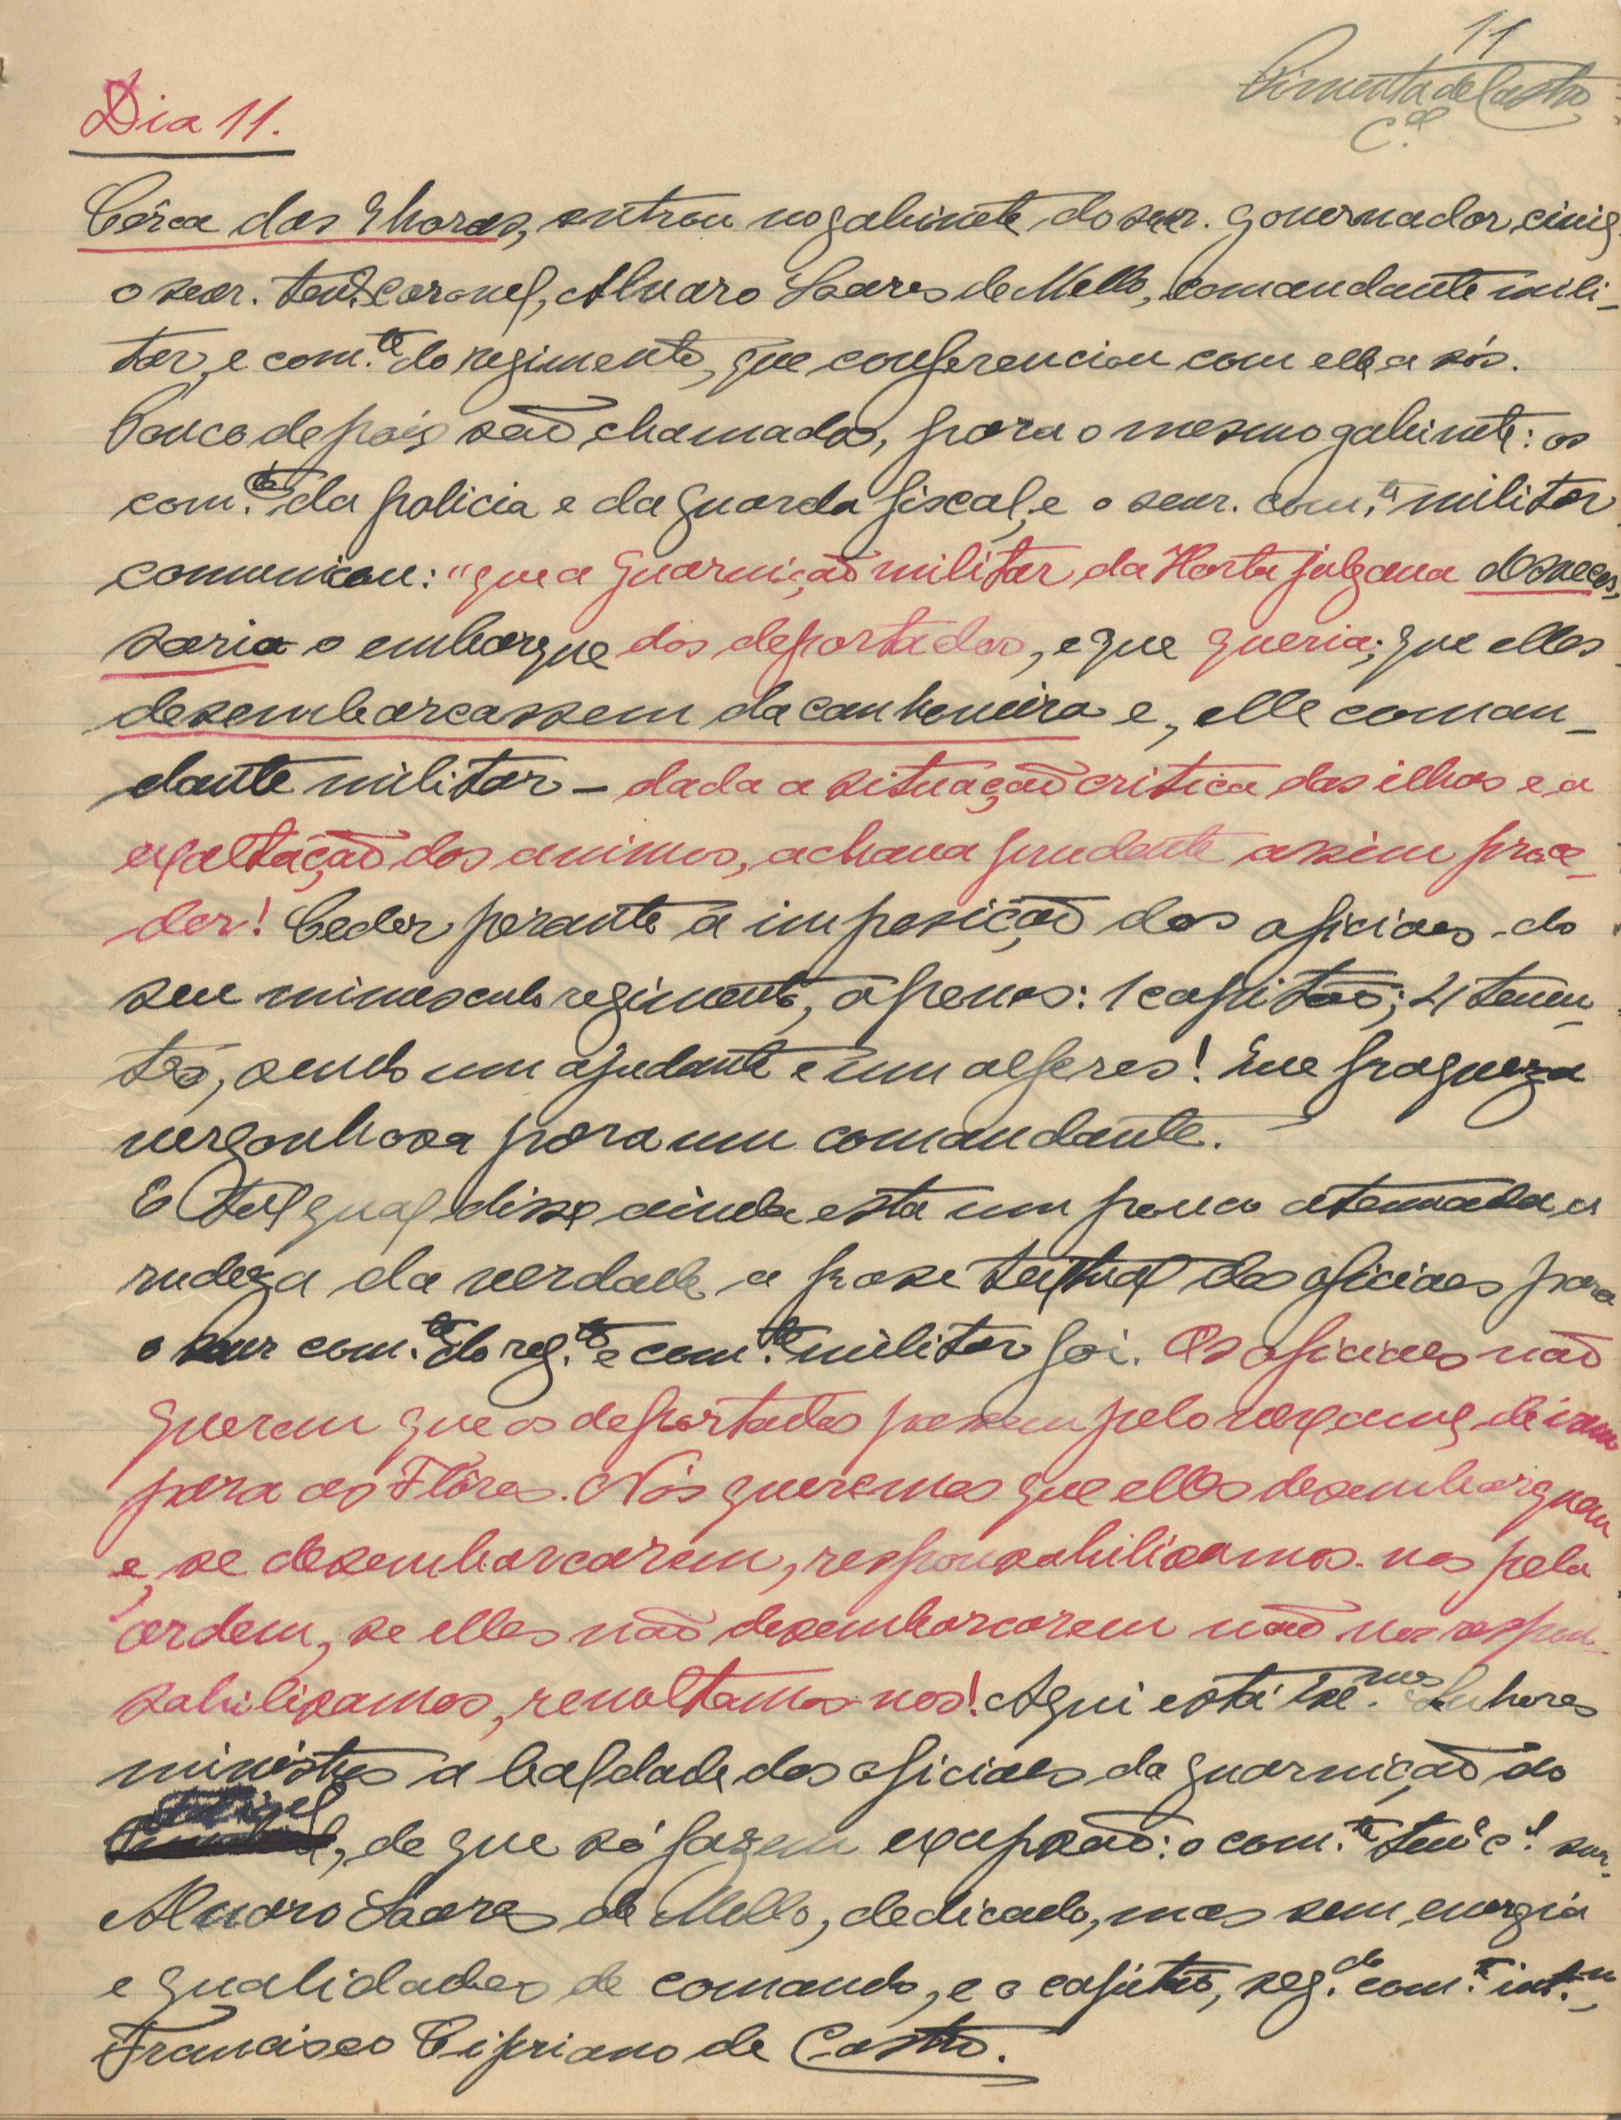 11
Pimenta de Castro
C.el
Dia 11.
Cêrca das 9 horas, entrou no gabinete do senr. governador civil
o senr. ten.e coronel, Alvaro Soares de Mello, comandante mili-
tar, e com.te do regimento, que conferenciou com elle a sós.
Pouco depois são chamados, para o mesmo gabinete: os
com.tes da policia e da guarda fiscal, e o senr. com.te militar
comunicou: "que a guarnição militar da Horta julgava desneces-
saria o embarque dos deportados, e que queria; que elles
desembarcassem da canhoneira e, elle coman-
dante militar – dada a situação critica das ilhas e a
exaltação dos animos, achava prudente assim proce-
der! Ceder perante a imposição dos oficiaes do
seu minusculo regimento, apenas: 1 capitão; 4 tenen-
tes, sendo um ajudante e um alferes! Que fraqueza
vergonhosa para um comandante.
E tal qual disse ainda está um pouco atenuada a
rudeza da verdade, a frase textual dos oficiaes para
o senr com.te do reg.to e com.te militar foi. Os oficiaes não
querem que os deportados passem pelo vexame de irem
para as Flôres. Nós queremos que elles desembarquem
e, se desembarcarem, responsabilisamos-nos pela
ordem, se elles não desembarcarem não nos respon-
sabilisamos, revoltamos-nos! Aqui está Exc.mos Senhores
ministros a lealdade dos oficiaes da guarnição do
, de que só fazem excepção: o com.te ten.e c.el snr.
Alvaro Soares de Mello, dedicado, mas sem energia
e qualidades de comando, e o capitão, seg.do com.te int.no,
Francisco Cipriano de Castro.